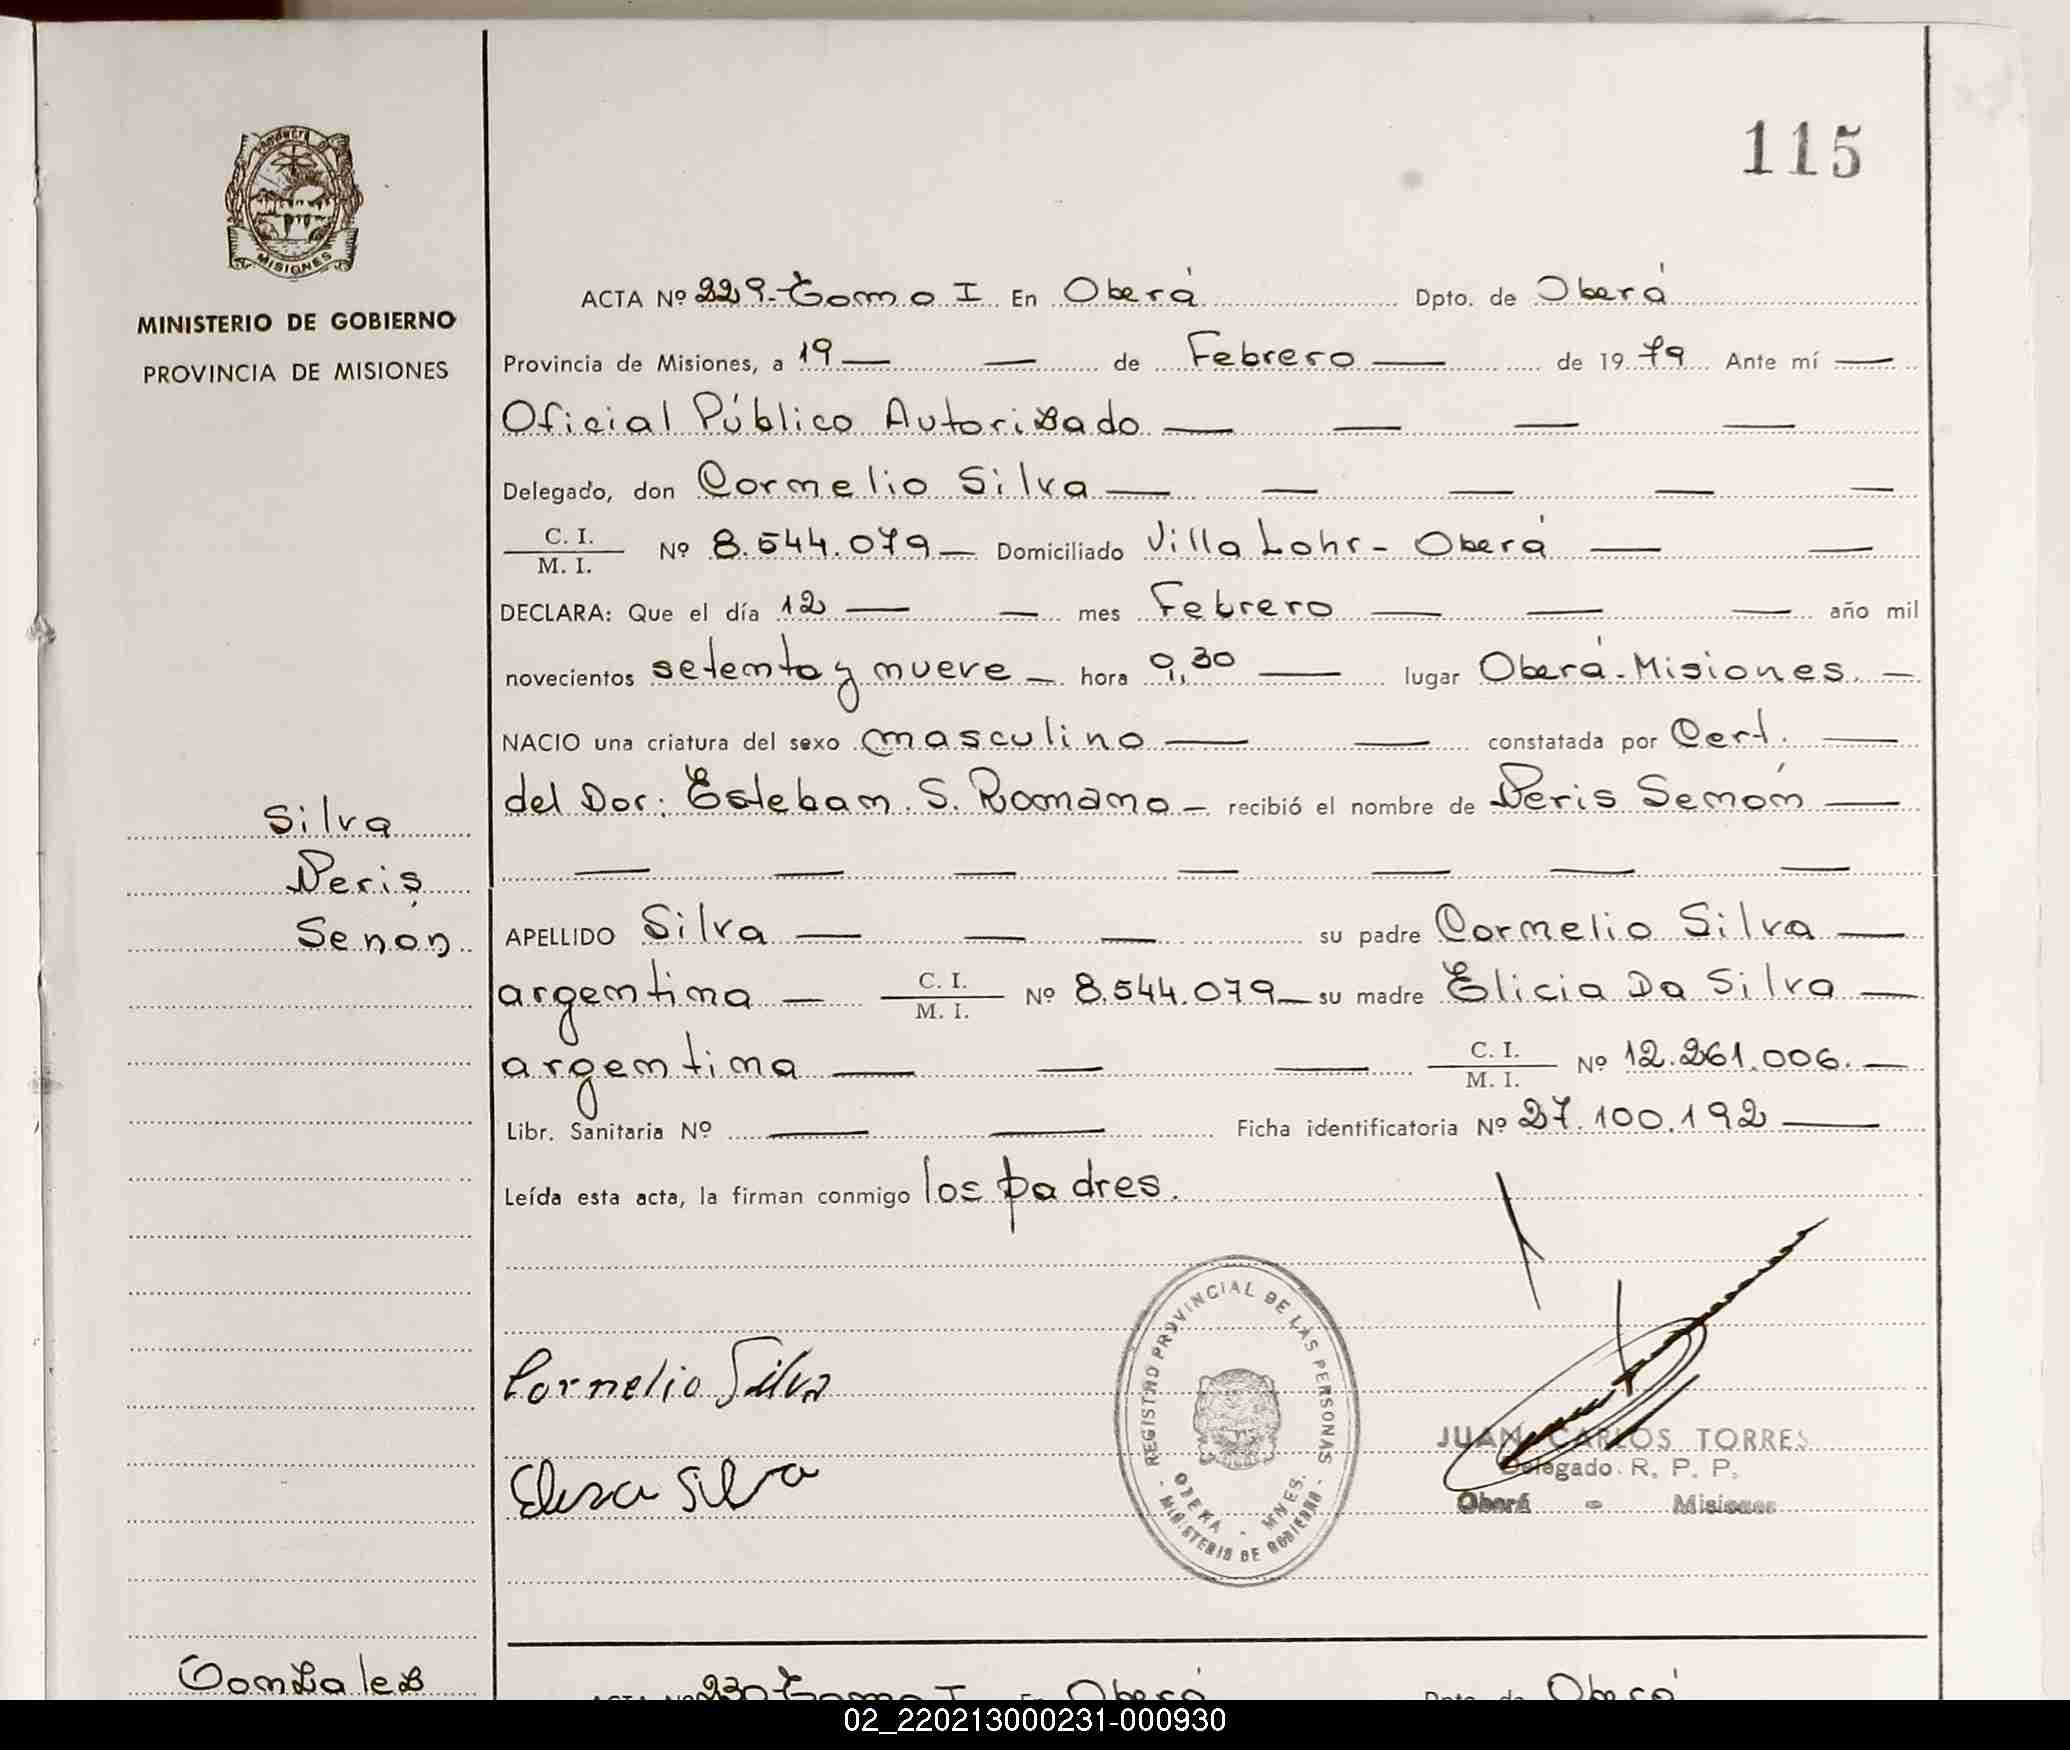 115
MISIONES
MINISTERIO DE GOBIERNO
PROVINCIA DE MISIONES
ACTA Nº 229-Tomo I En Oberá Dpto. de Oberá
Provincia de Misiones, a 19 — — de Febrero — de 1979 Ante mí —
Oficial Público Autorizado — — — —
Delegado, don Cornelio Silva — — — — —
C. I.
M. I.
Nº 8.544.079 — Domiciliado Villa Lohr - Oberá — —
DECLARA: Que el día 12 — — mes Febrero — — — año mil
novecientos setenta y nueve — hora 9,30 — lugar Oberá-Misiones. —
NACIO una criatura del sexo masculino — — constatada por Cert. —
del Dor: Esteban S. Romano — recibió el nombre de Neris Senón —
— — — — — — —
Silva
Neris
Senón
APELLIDO Silva — — — su padre Cornelio Silva —
argentina — C. I. / M. I. Nº 8.544.079 — su madre Elicia Da Silva —
argentina — — — C. I. / M. I. Nº 12.261.006. —
Libr. Sanitaria Nº — — Ficha identificatoria Nº 27.100.192 —
Leída esta acta, la firman conmigo los padres.
Cornelio Silva
Elisa Silva
REGISTRO PROVINCIAL DE LAS PERSONAS
OBERA - MNES.
- MINISTERIO DE GOBIERNO -
JUAN CARLOS TORRES
Delegado R. P. P.
Oberá - Misiones
Gonzalez
ACTA Nº 230 Tomo I En Oberá Dpto. de Oberá
02_220213000231-000930